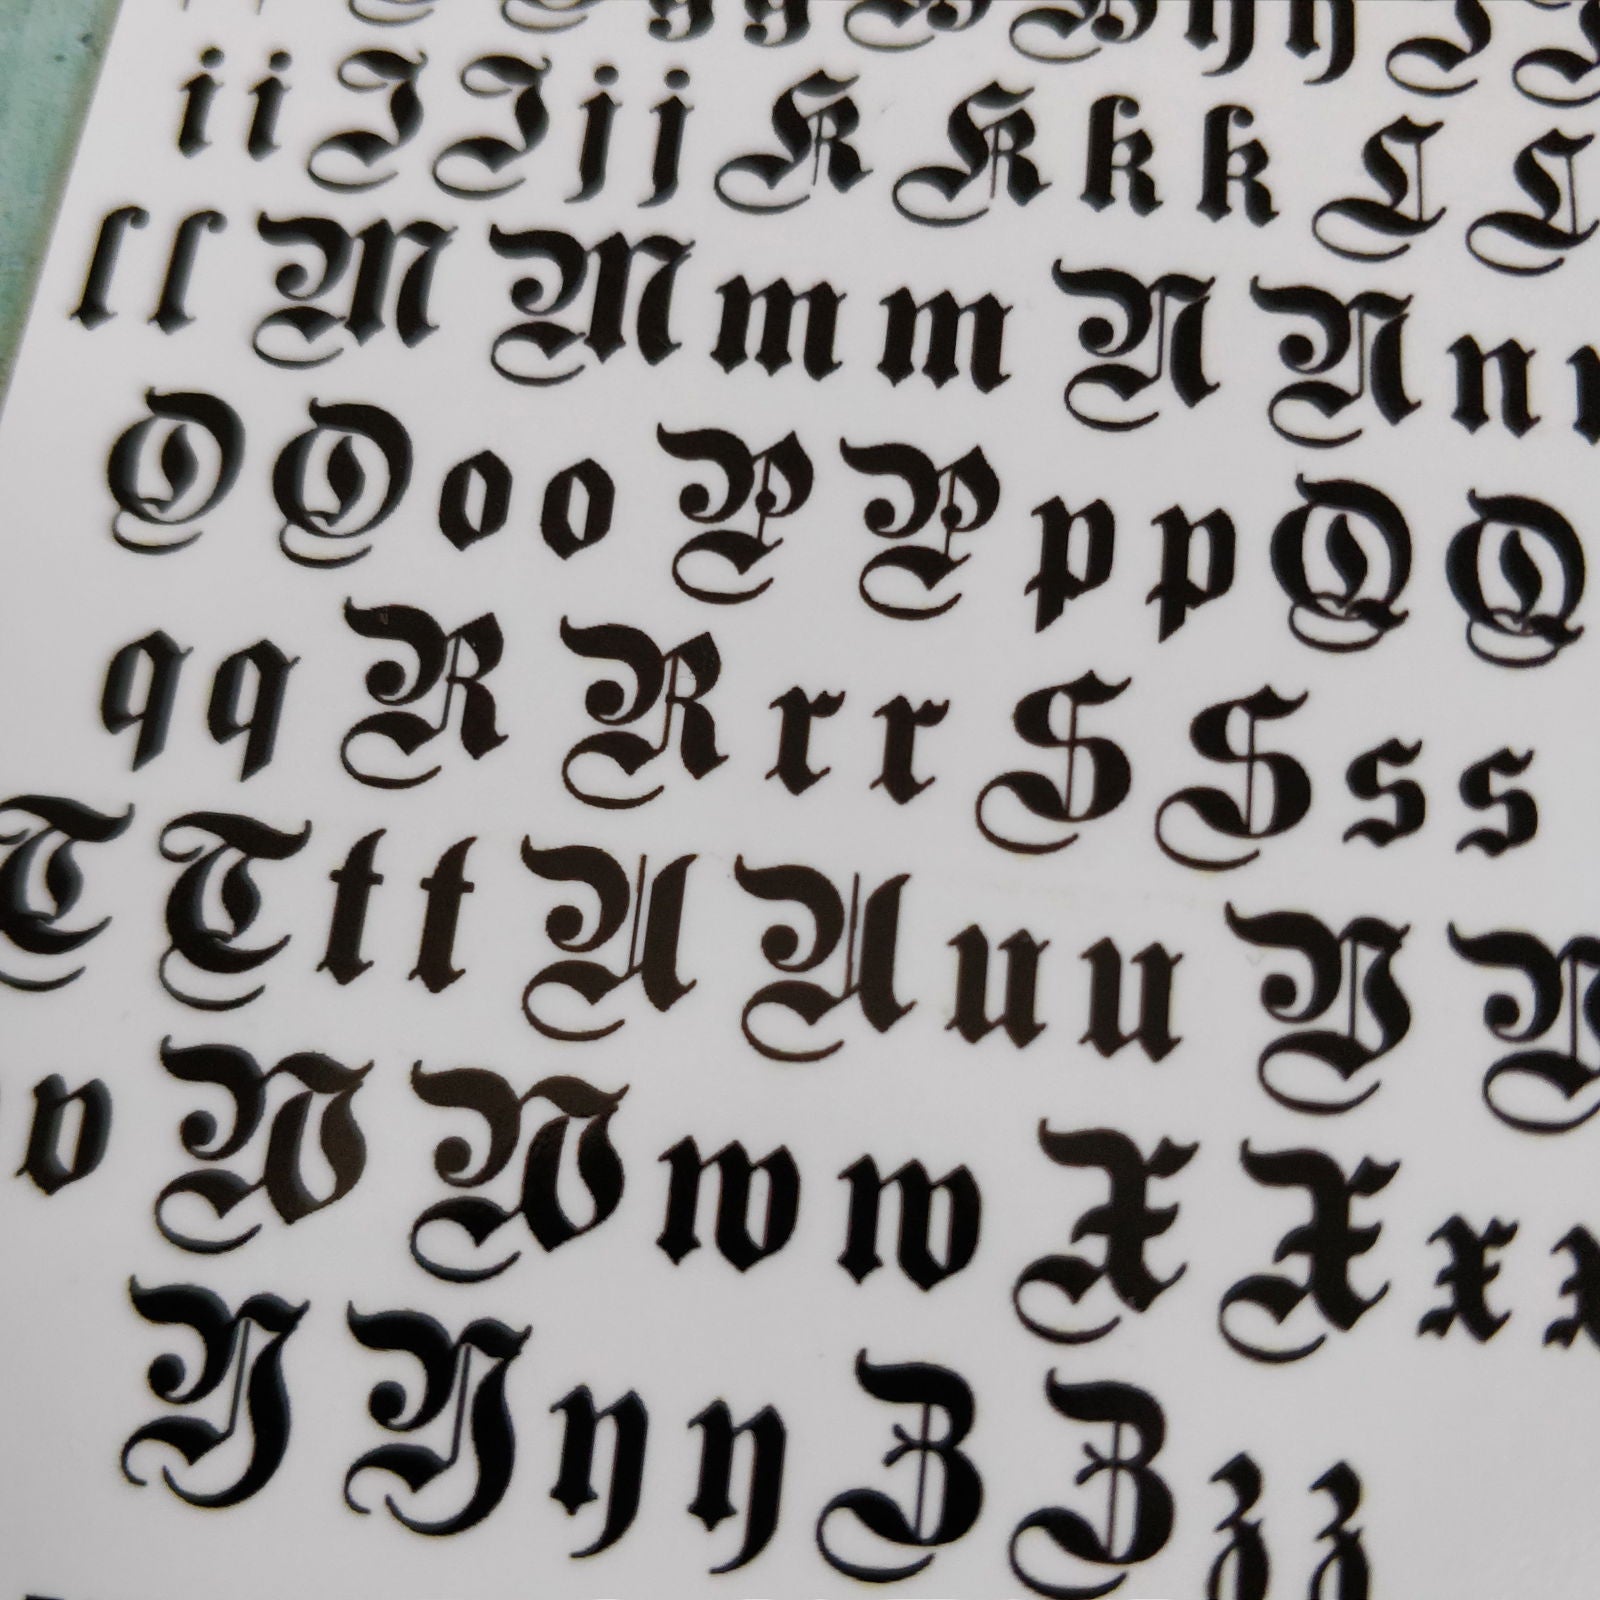 g g H H h h I I
i i J J j j K K k k L L
l l M M m m N N n n
O O o o P P p p Q Q
q q R R r r S S s s
T T t t U U u u V V
v W W w w X X x x
Y Y y y Z Z z z